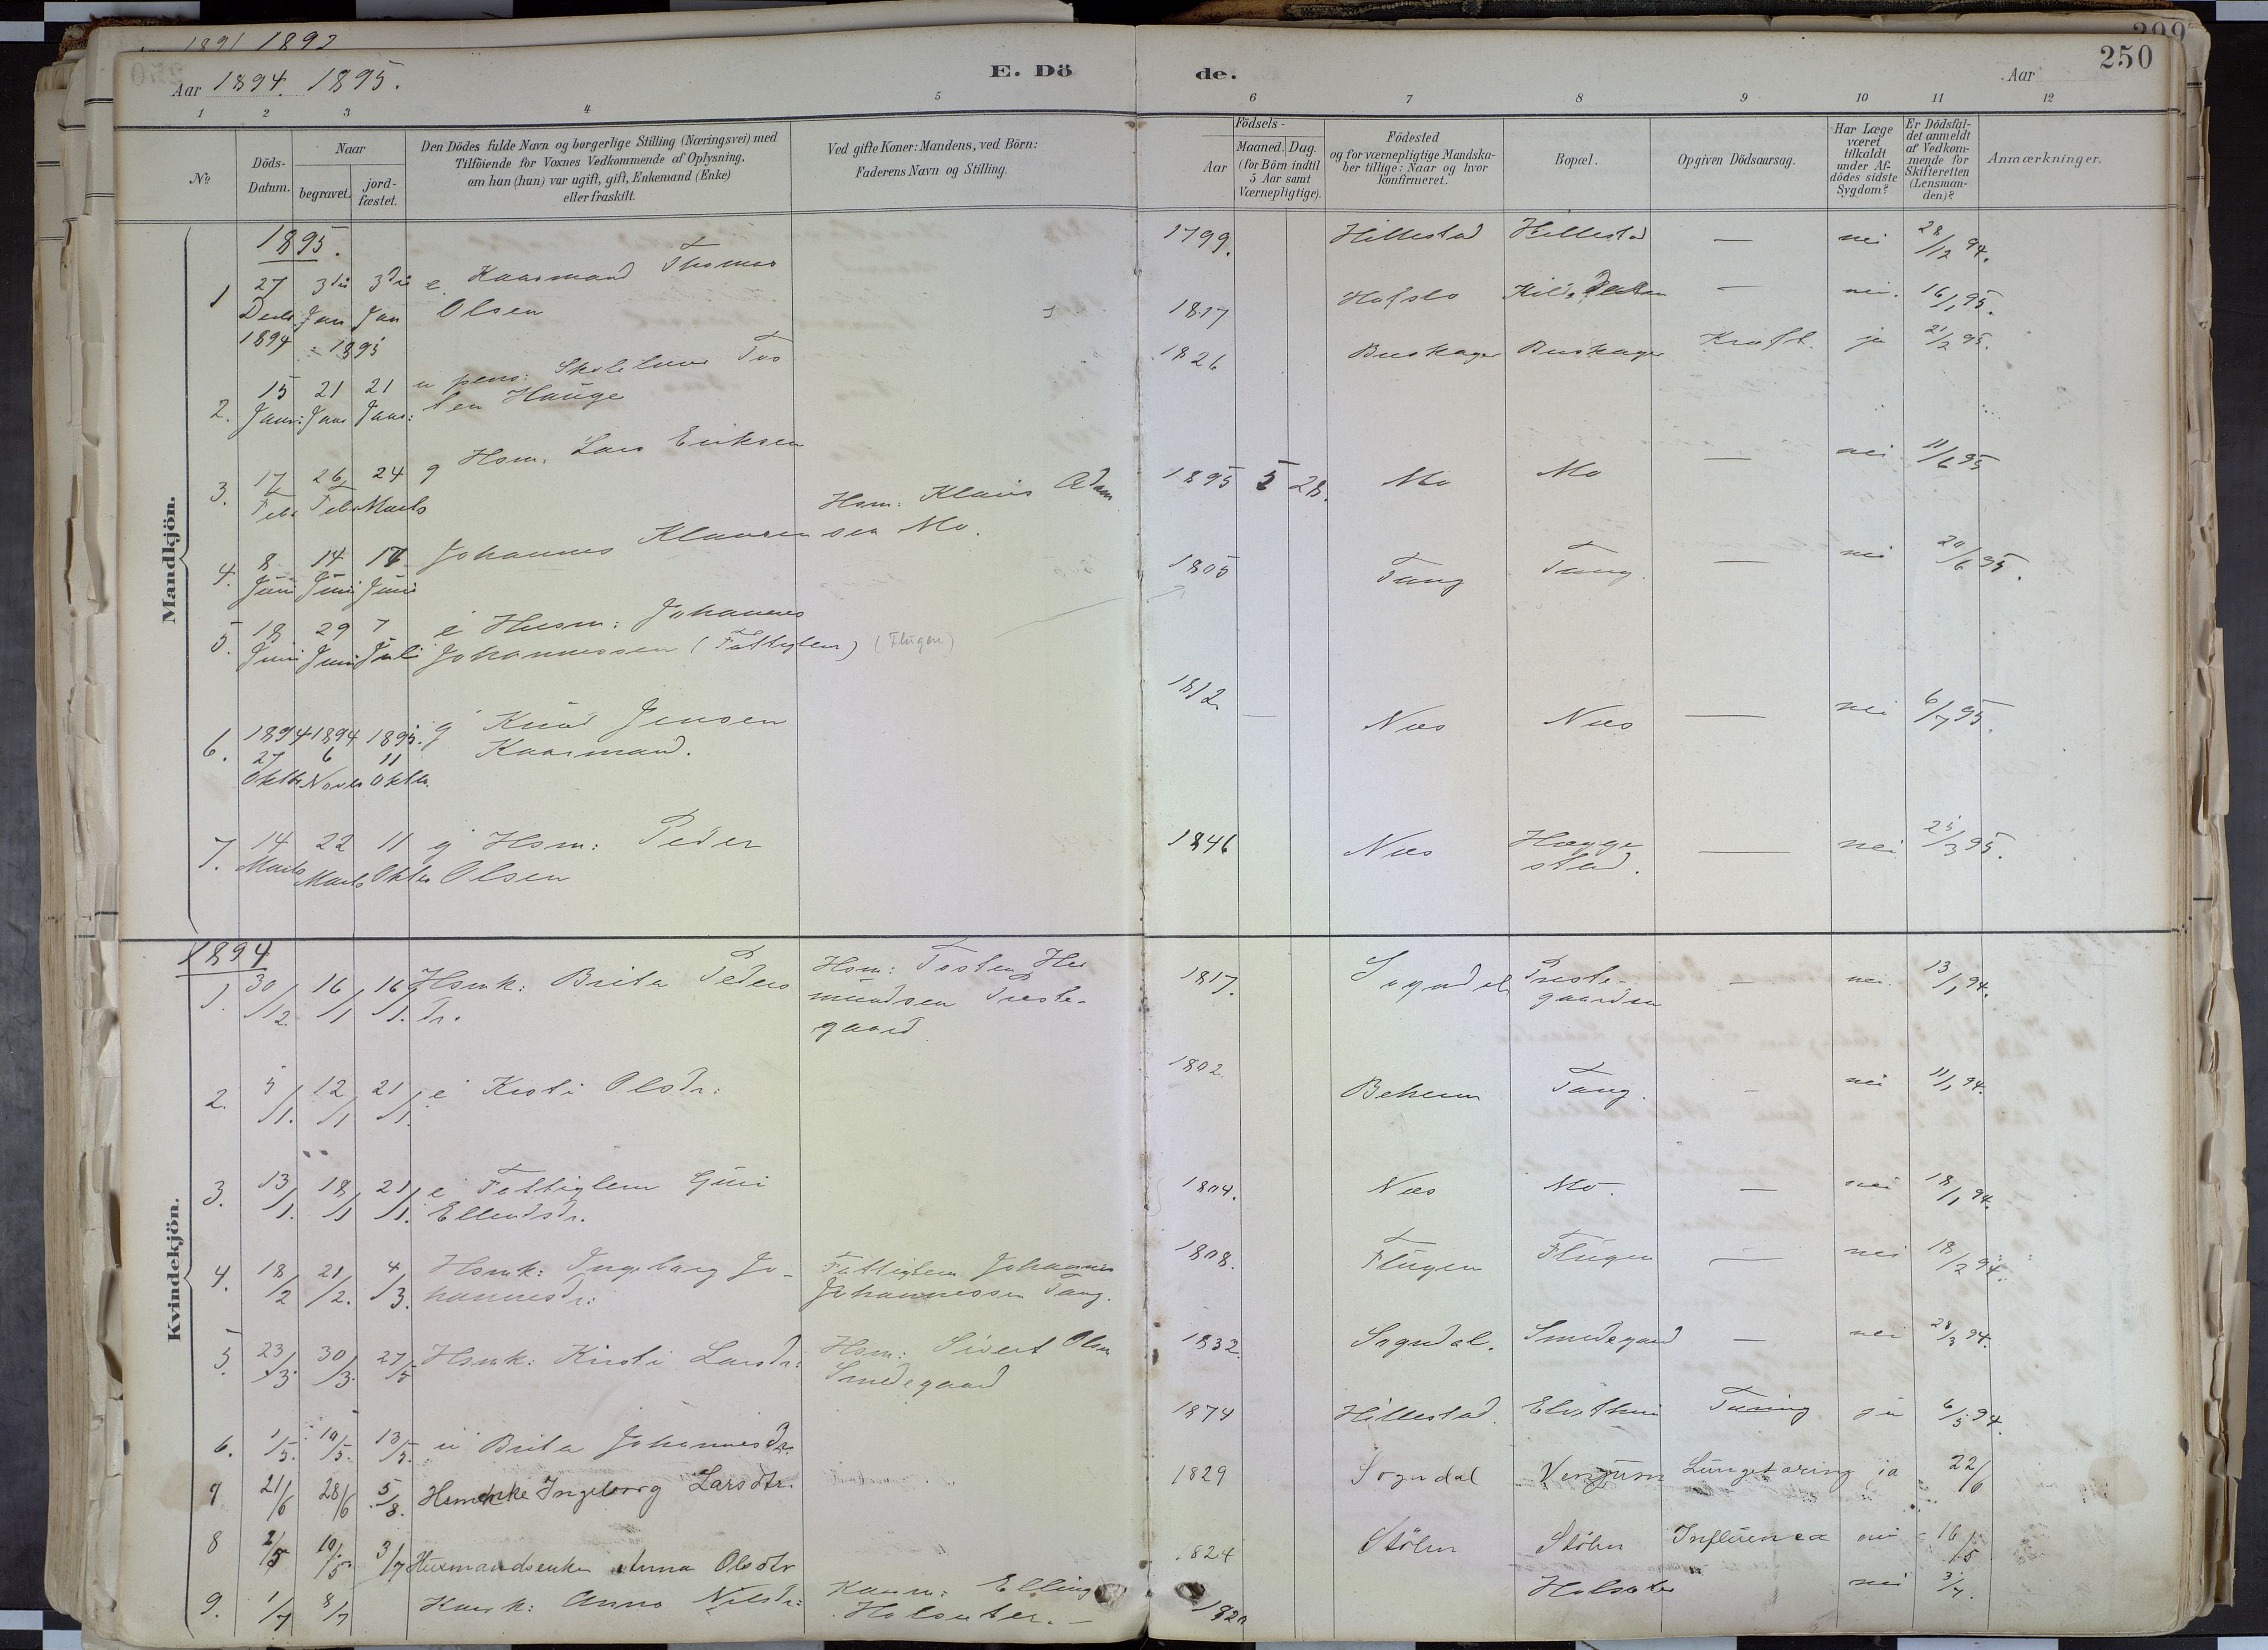 1891 1892
250
Aar 1894. 1895.
E. Dö de.
Aar
1 2 3 4 5 6 7 8 9 10 11 12
No
Döds-Datum.
Naar
begravet. jord-fæstet.
Den Dödes fulde Navn og borgerlige Stilling (Næringsvei) med
Tilföiende for Voxnes Vedkommende af Oplysning,
om han (hun) var ugift, gift, Enkemand (Enke)
eller fraskilt.
Ved gifte Koner: Mandens, ved Börn:
Faderens Navn og Stilling.
Födsels-
Aar Maaned. Dag.
(for Börn indtil
5 Aar samt
Værnepligtige).
Födested
og for værnepligtige Mandska-
ber tillige: Naar og hvor
konfirmeret.
Bopæl.
Opgiven Dödsaarsag.
Har Læge
været
tilkaldt
under Af-
dödes sidste
Sygdom?
Er Dödsfal-
det anmeldt
af Vedkom-
mende for
Skifteretten
(Lensman-
den)?
Anmærkninger.
Mandkjön.
1895.
1 27 Decb. 1894 3die Jan 3die Jan 1895 e. Kaarmand Thomas Olsen 1799. Hillestad Hillestad — nei 28/12 94.
2. 15 Janr: 21 Janr 21 Janr: u pens: Skolelærer Tosten Hauge 1817 Hafslo — nei. 16/1 95.
3. 17 Feb 26 Feb 24 Marts g Hsm. Lars Eriksen 1826 Buskager Buskager Kræft. ja 21/2 95.
4. 8 Juni 14 Juni 17 Juni Johannes Klausen Hsm: Klaus Adamsen Mo. 1895 5 28. Mo Mo — nei 11/6 95
5. 18 Juni 29 Juni 7 Juli e Husm: Johannes Johannessen (Fattiglem) (Flugen) 1805 Tang Tang. — nei 20/6 95.
6. 1894 27 Oktbr 1894 6 Novbr 1895. 11 Oktbr. g Knud Jensen Kaarmand. 1812. Næs Næs — nei 6/7 95.
7. 14 Marts 22 Marts 11 Oktbr g Hsm: Peder Olsen 1846 Næs Hæggestad. — nei 25/3 95.
Kvindekjön.
1894
1. 30/12. 16/1 16/1. Hsmk: Brita Pedersdr. Hsm: Tosten Hermundsen Prestegaard 1817. Sogndal Prestegaarden — nei. 13/1 94.
2. 5/1. 12/1 21/1. e Kirsti Olsdr: 1802. Beheim Tang. — nei 11/1 94.
3. 13/1. 18/1 21/1. e Fattiglem Guri Ellendsdr. 1804. Næs Mo. — nei 18/1 94.
4. 18/2 21/2. 4/3. Hsmk: Ingeborg Johannesdr: Fattiglem Johannes Johannessen Tang. 1808. Flugen Flugen — nei 18/2 94.
5. 23/3. 30/3. 27/5 Hsmk: Kirsti Larsdr: Hsm: Sivert Olsen Smedegaard 1832. Sogndal. Smedegaard — nei 28/3 94.
6. 1/5. 10/5. 13/5. u Brita Johannesdr. 1874 Hillestad. Tæring ja 6/5 94.
7 21/6 28/6 5/8. Hsmenke Ingeborg Larsdtr. 1829 Sogndal Venjum Lungetæring ja 22/6
8 2/5 10/5. 3/7 Husmandsenke Anna Olsdtr 1824 Stölen Stölen Influenza nei 16/5
9. 1/7 8/7 Kaark: Anna Nilsdr: Kaarm: Elling Holsæter. — 1820 Holsæter " nei 3/7.